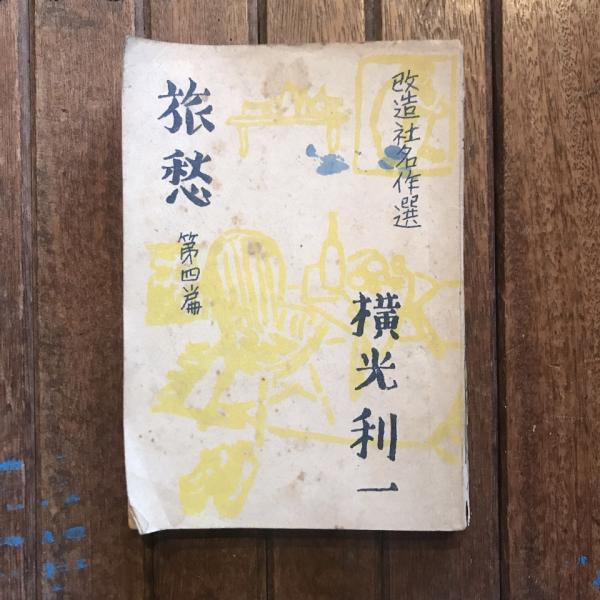 改造社名作選
旅愁
第四篇
橫光利一